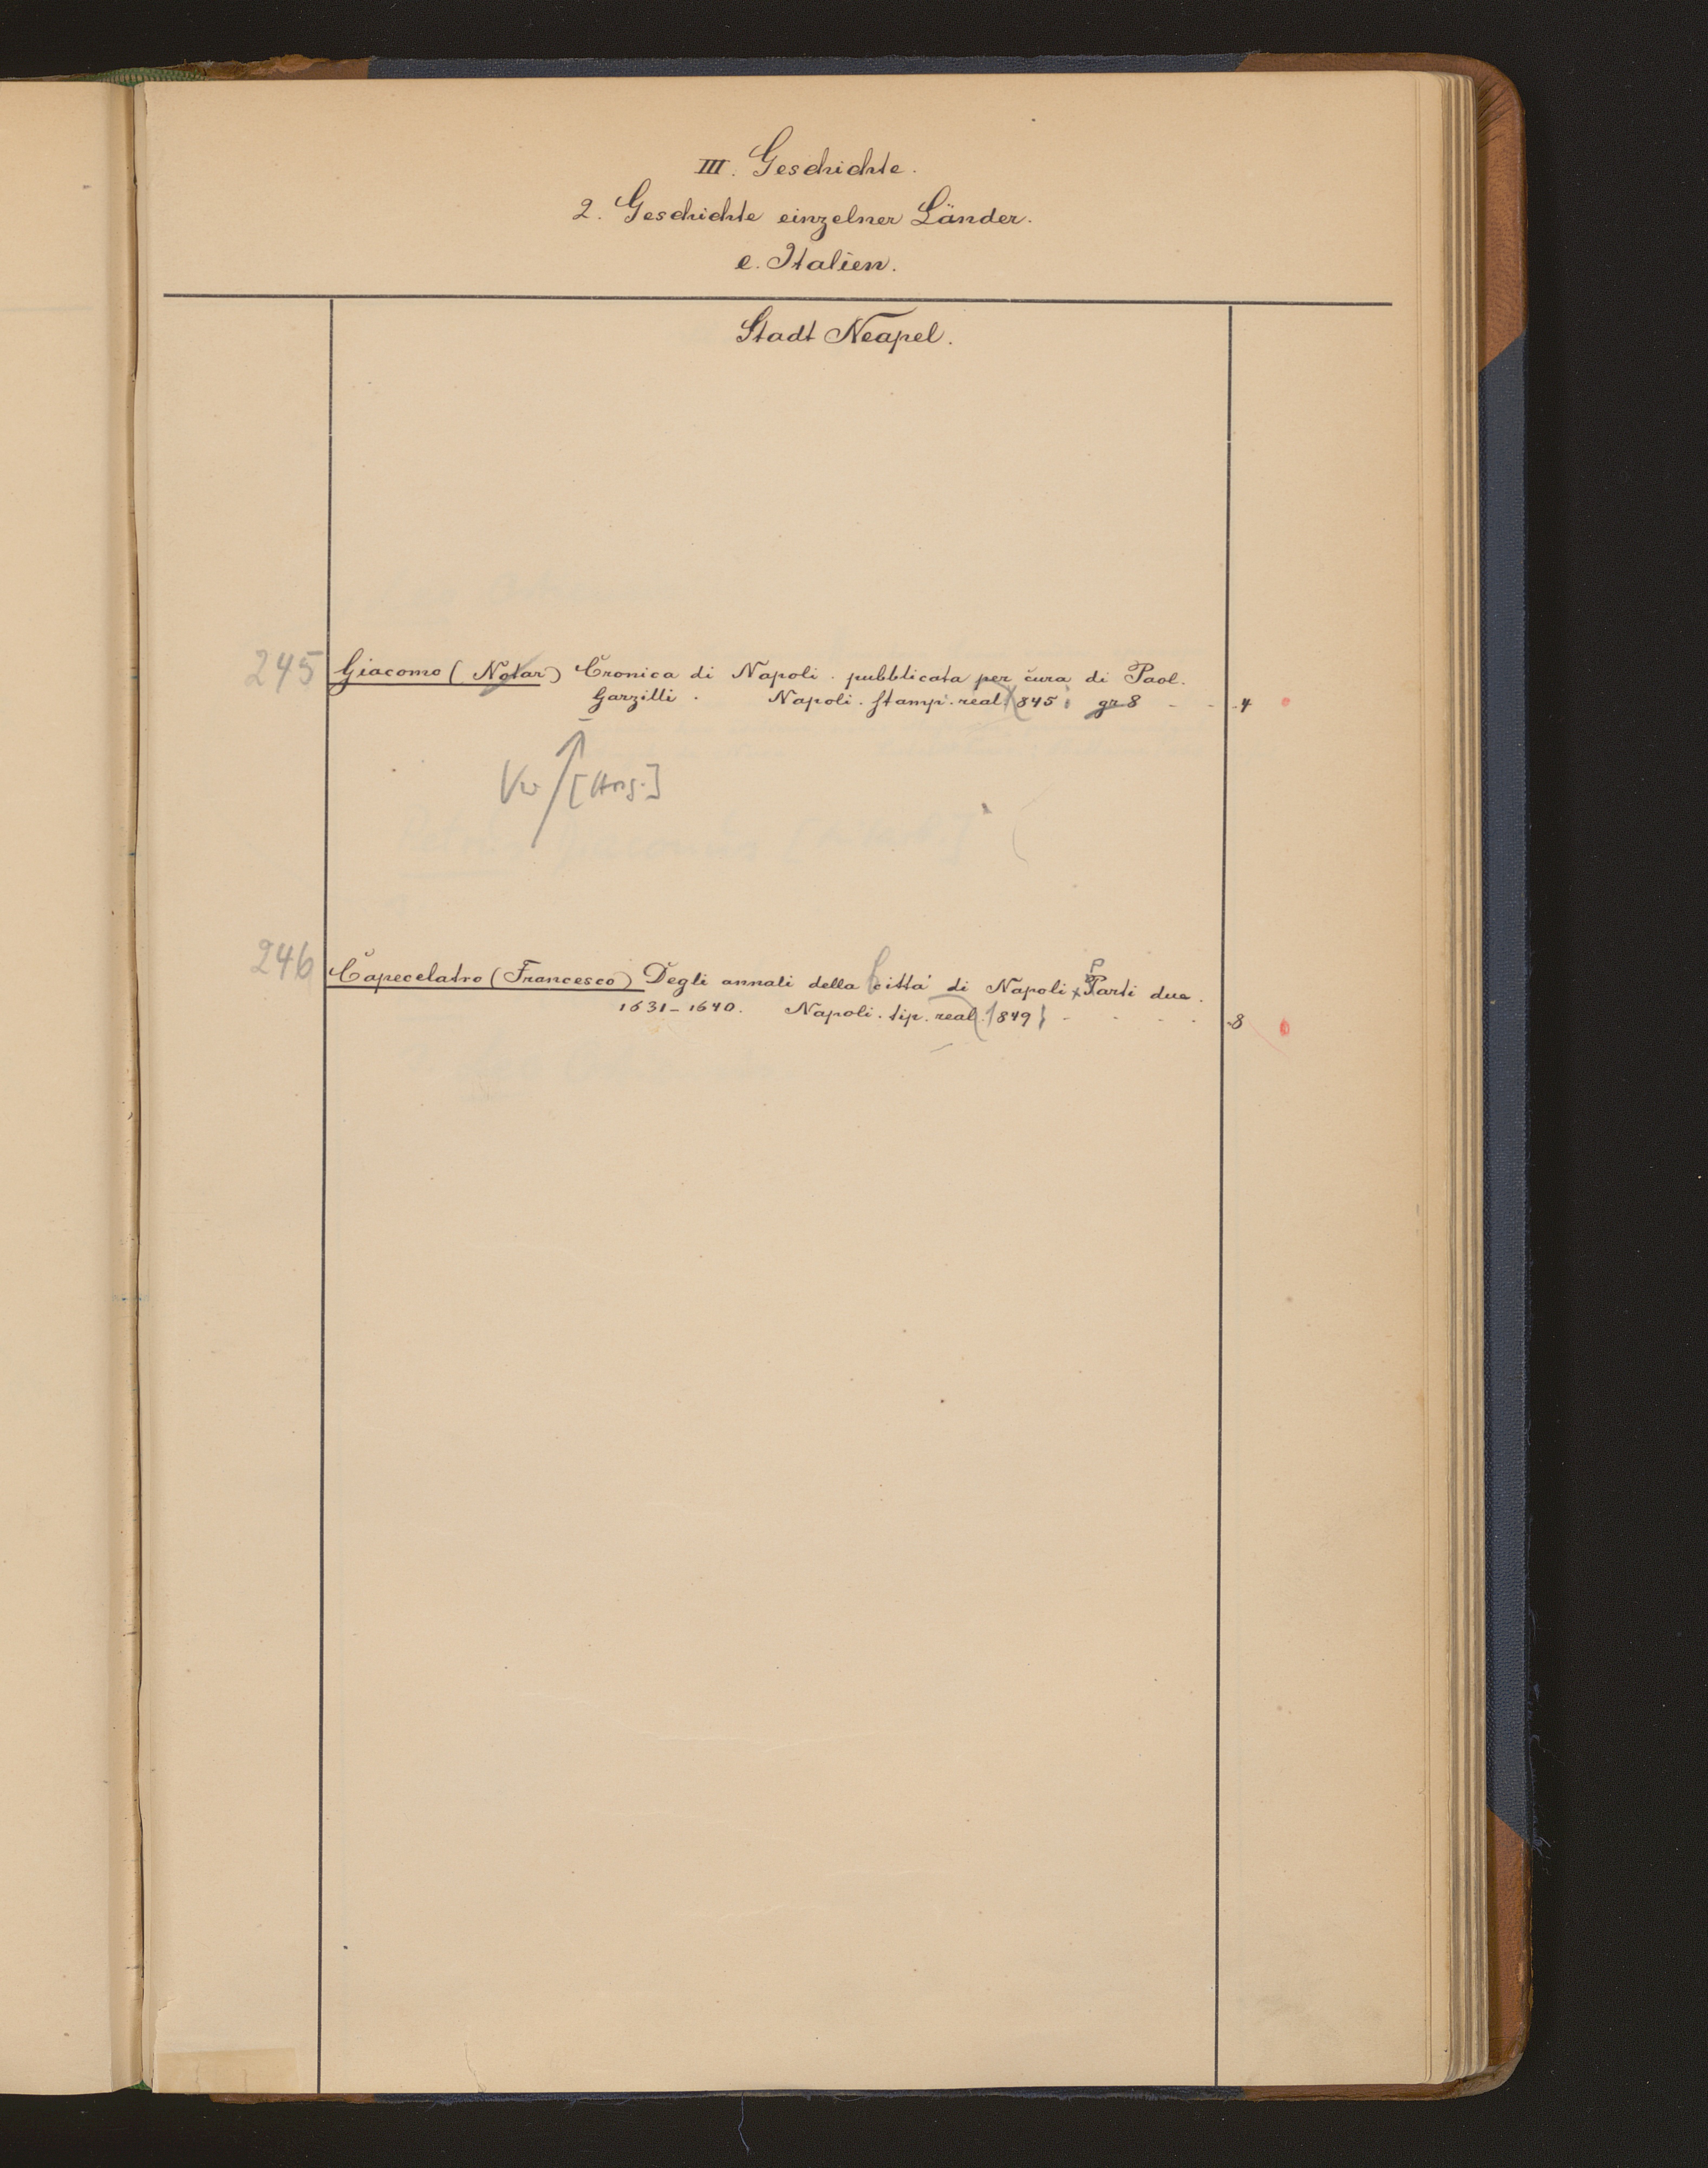 III. Geschichte.
2. Geschichte einzelner Länder.
e. Italien.
Stadt Neapel.
245 Giacomo (Notar) Cronica di Napoli. pubblicata per cura di Paol.
Garzilli. Napoli. stamp. real. 845. gr 8 - - 4
Vw [Hrsg.]
246 Capecelatro (Francesco) Degli annali della città di Napoli Parti due.
1631-1640. Napoli. tip. real. 1849 - - - - 8